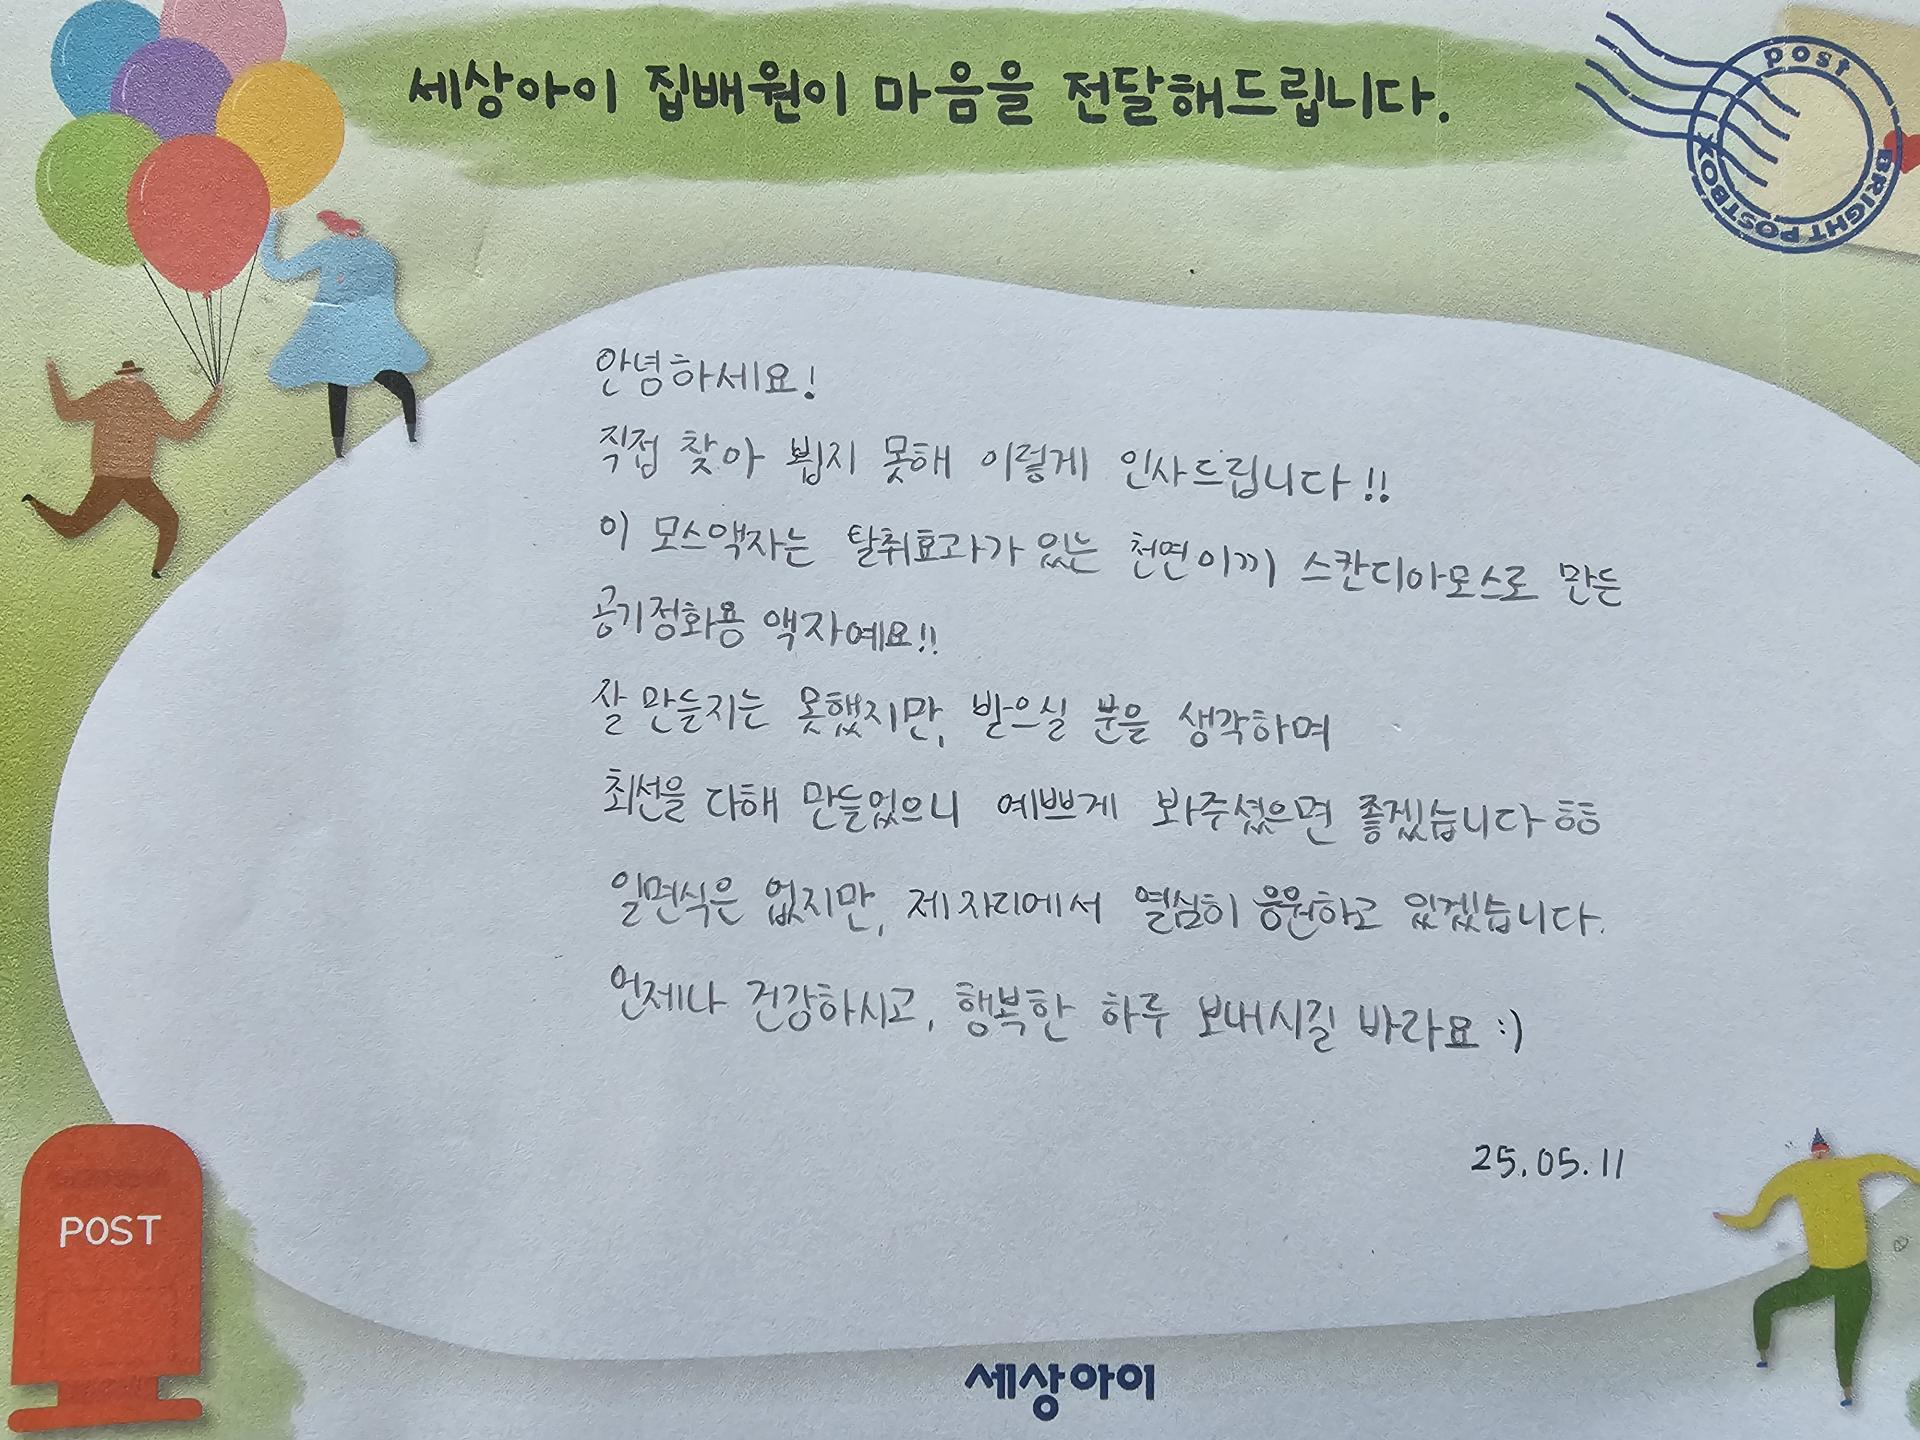 세상아이 집배원이 마음을 전달해드립니다.
post
BRIGHT POSTBOX
안녕하세요!
직접 찾아 뵙지 못해 이렇게 인사드립니다!!
이 모스액자는 탈취효과가 있는 천연이끼 스칸디아모스로 만든
공기정화용 액자예요!!
잘 만들지는 못했지만, 받으실 분을 생각하며
최선을 다해 만들었으니 예쁘게 봐주셨으면 좋겠습니다 ㅎㅎ
일면식은 없지만, 제 자리에서 열심히 응원하고 있겠습니다.
언제나 건강하시고, 행복한 하루 보내시길 바라요 :)
25.05.11
POST
세상아이